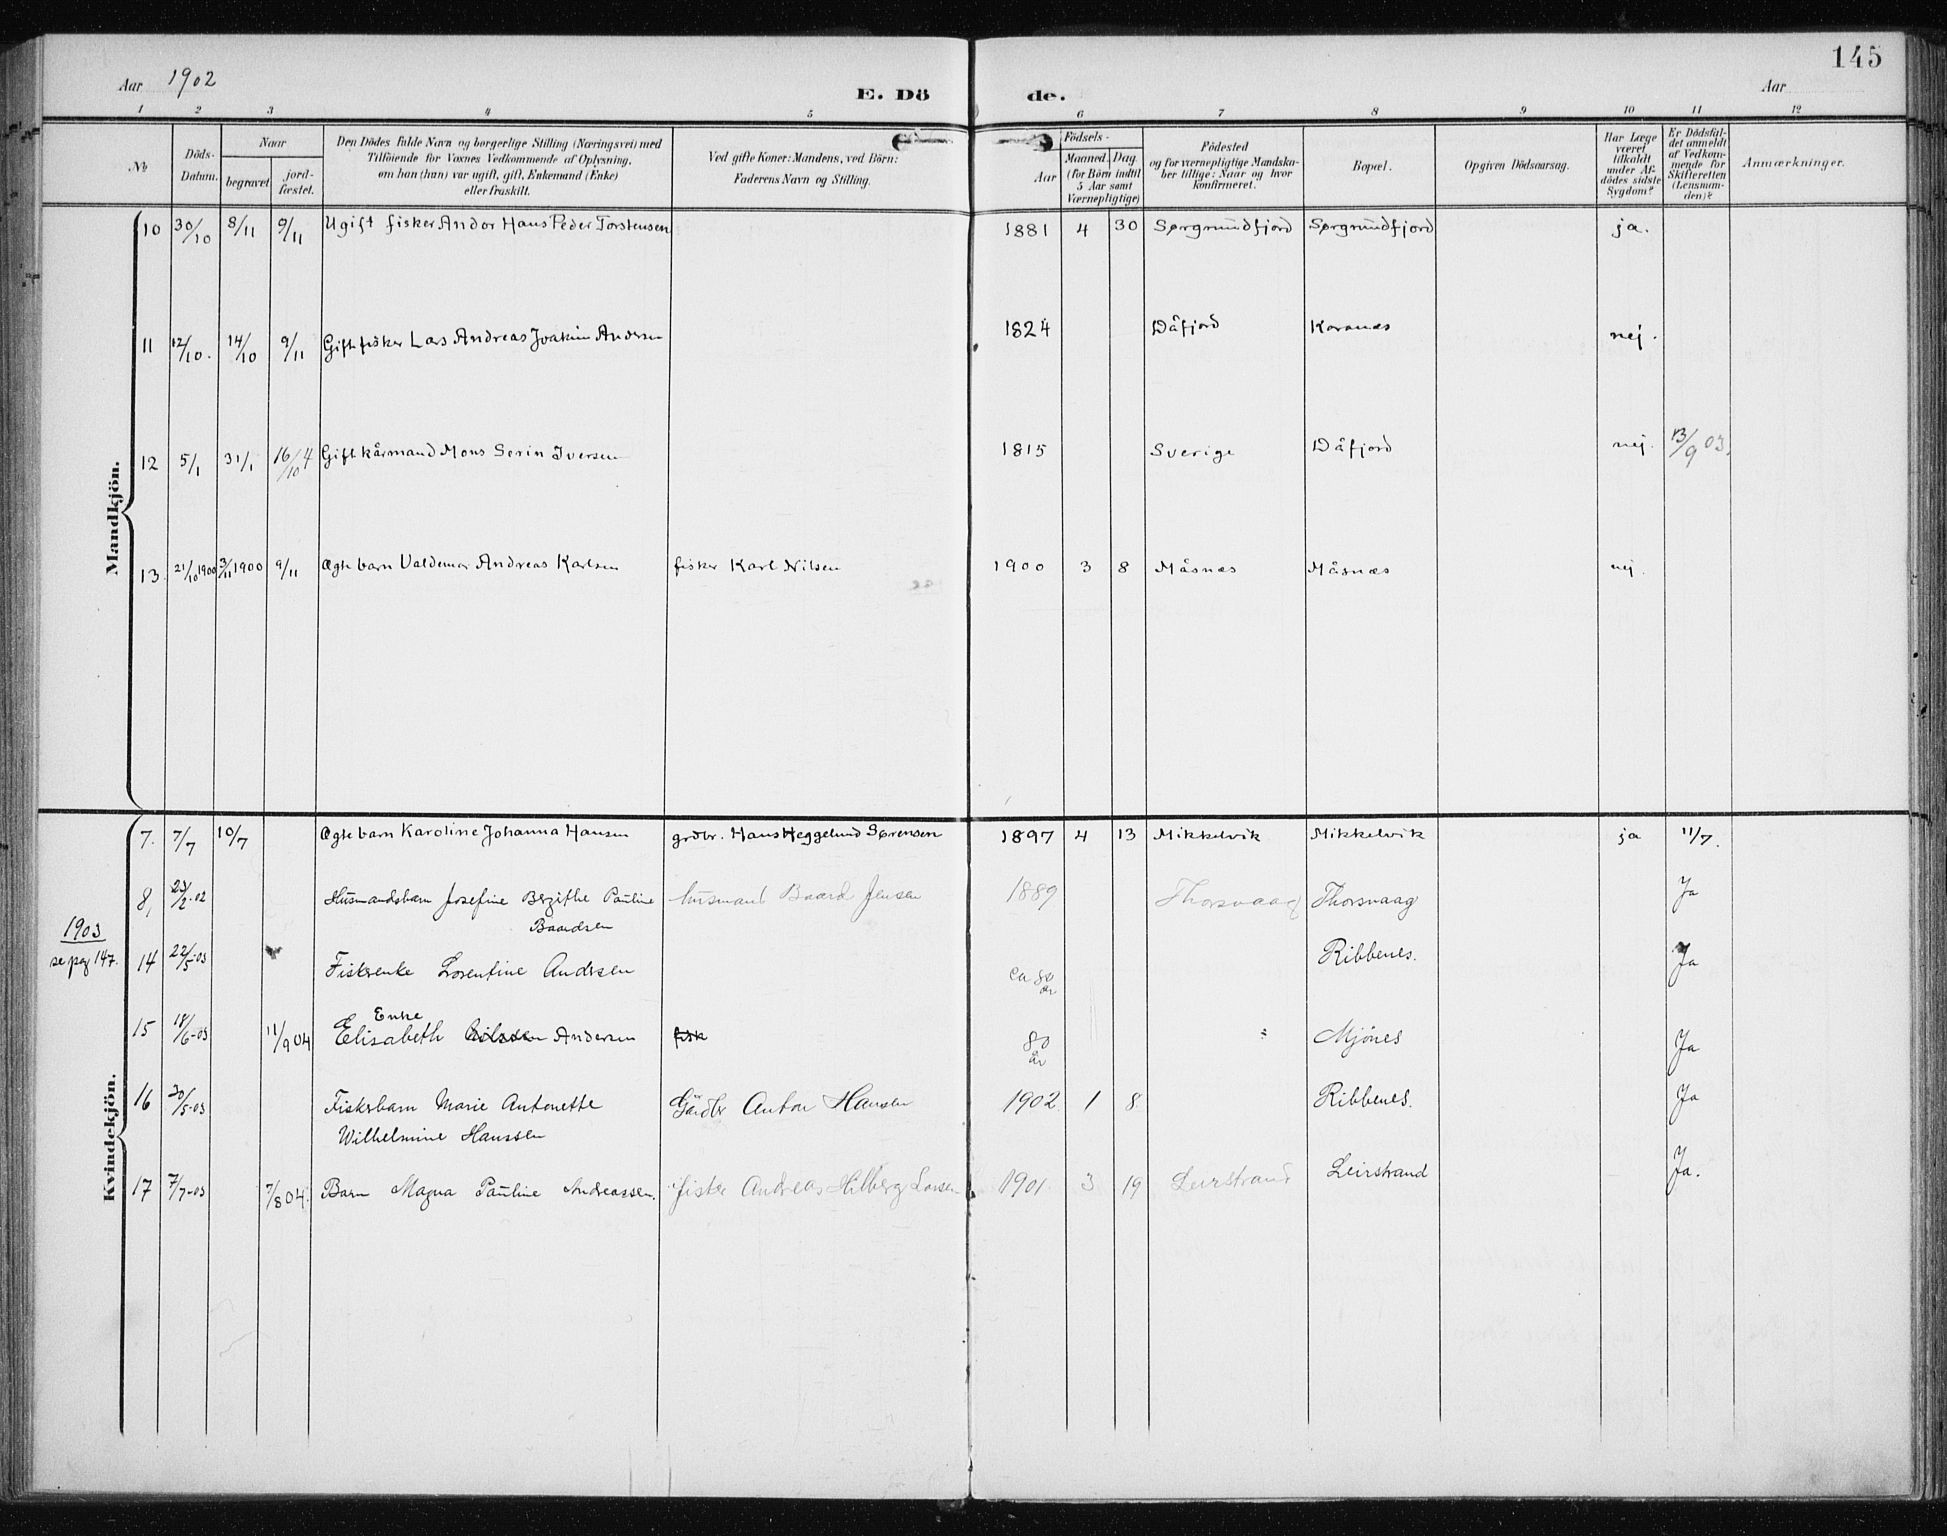 Aar 1902
E. Dö de.
Aar
145
1 2 3 4 5 6 7 8 9 10 11 12
No
Döds-Datum.
Naar
begravet
jord-fæstet.
Den Dödes fulde Navn og borgerlige Stilling (Næringsvei) med
Tilföiende for Voxnes Vedkommende af Oplysning,
om han (hun) var ugift, gift, Enkemand (Enke)
eller fraskilt.
Ved gifte Koner: Mandens, ved Börn:
Faderens Navn og Stilling.
Födsels-
Aar
Maaned. Dag.
(for Börn indtil
5 Aar samt
Værnepligtige)
Födested
og for værnepligtige Mandska-
ber tillige: Naar og hvor
konfirmeret.
Bopæl.
Opgiven Dödsaarsag.
Har Læge
været
tilkaldt
under Af-
dödes sidste
Sygdom?
Er Dödsfal-
det anmeldt
af Vedkom-
mende for
Skifteretten
(Lensman-
den)?
Anmærkninger.
Mandkjön.
10 30/10 8/11 9/11 Ugift fisker Andor Hans Peder Torstensen 1881 4 30 Sørgrundfjord Sørgrundfjord ja.
11 12/10. 14/10 9/11 Gift fisker Lars Andreas Joakim Andersen 1824 Dåfjord Koranæs nej.
12 5/1 31/1 16/10 4 Gift kårmand Mons Serin Iversen 1815 Sverige Dåfjord nej. 13/9 03.
13. 21/10 1900 3/11 1900 9/11 Ægte barn Valdemar Andreas Karlsen fisker Karl Nilsen 1900 3 8 Måsnæs Måsnæs nej.
Kvindekjön.
7. 7/7 10/7 Ægte barn Karoline Johanna Hansen grdbr. Hans Heggelund Sørensen 1897 4 13 Mikkelvik Mikkelvik ja 11/7.
8, 23/2-02 Husmandsbarn Josefine Bergithe Pauline husmand Baard Jensen 1889 Thorsvaag Thorsvaag Ja
Baardsen
1903
se pag 147.
14 22/5-03 Fiskerenke Lorentine Andersen ca 80 år Ribbenes. Ja
Enke
15 18/6-03 11/9 04 Elisabeth Andersen fisk 80 år Mjönes Ja
16 30/5-03 Fiskerbarn Marie Antonette Gårdbr Anton Hansen 1902 1 8 Ribbenes. Ja
Wilhelmine Hanssen
17 7/7-03 7/8 04 Barn Magna Pauline Andreassen. fisker Andreas Hilberg Larsen 1901 3 19 Leirstrand Leirstrand Ja.